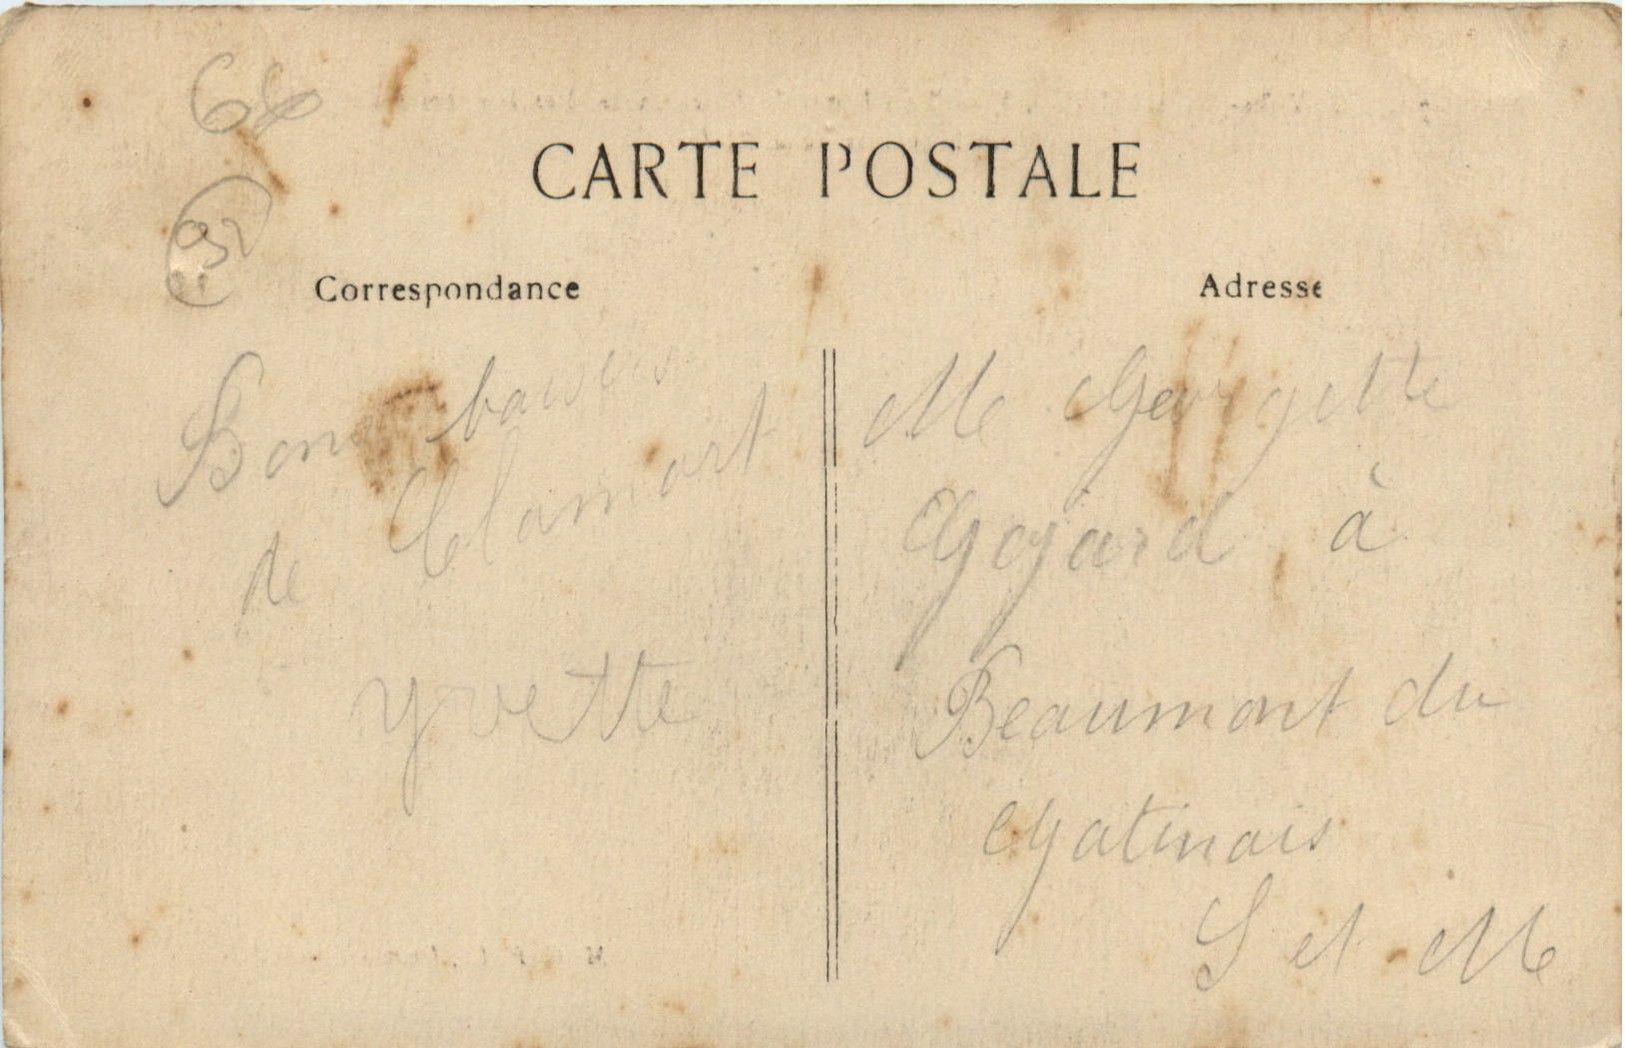 CARTE POSTALE
92
Correspondance
Adresse
Bons baisers
de Clamart
Yvette
Me Georgette
Gojard à
Beaumont du
Gatinais
S et M